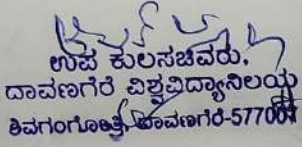 ಉಪ ಕುಲಸಚಿವರು,
ದಾವಣಗೆರೆ ವಿಶ್ವವಿದ್ಯಾನಿಲಯ
ಶಿವಗಂಗೋತ್ರಿ, ದಾವಣಗೆರೆ-577007